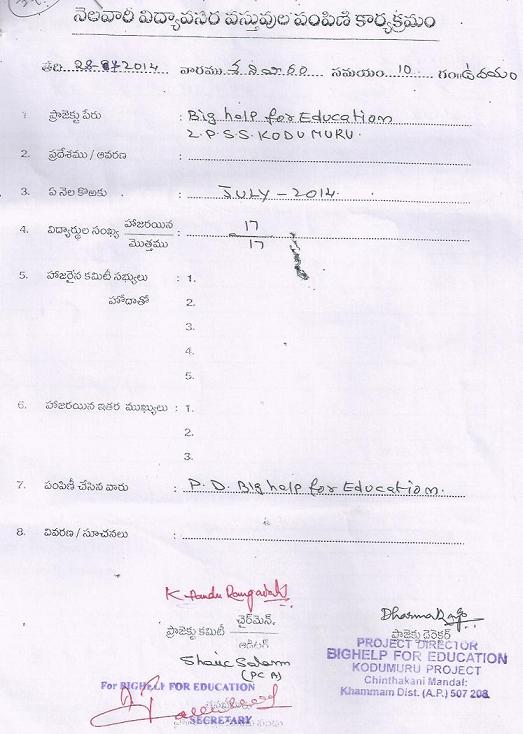 నెలవారీ విద్యావసర వస్తువుల పంపిణీ కార్యక్రమం
తేది 28-07-2014 వారము శనివారం సమయం 10 గం॥ఉదయం
1. ప్రాజెక్టు పేరు : Big help for Education
Z.P.S.S. KODUMURU.
2. ప్రదేశము / ఆవరణ :
3. ఏ నెల కొఱకు : JULY - 2014.
4. విద్యార్థుల సంఖ్య హాజరయిన / మొత్తము : 17 / 17
5. హాజరైన కమిటీ సభ్యులు : 1.
హోదాతో 2.
3.
4.
5.
6. హాజరయిన ఇతర ముఖ్యులు : 1.
2.
3.
7. పంపిణీ చేసిన వారు : P. D. Big help for Education.
8. వివరణ / సూచనలు :
K Pandu Rangarao
ప్రాజెక్టు కమిటీ ఛైర్మెన్.
ఆడిటర్
Shaic Salam
(PCA)
For BIGHELP FOR EDUCATION
SECRETARY
ప్రాజెక్టు డైరెక్టర్
PROJECT DIRECTOR
BIGHELP FOR EDUCATION
KODUMURU PROJECT
Chinthakani Mandal:
Khammam Dist. (A.P.) 507 208.